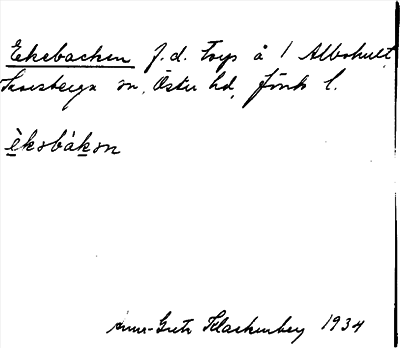 Ekebacken f.d. torp å 1 Albohult,
Korsberga sn, Östra hd, Jönk l.
èkəbàkən
Anna-Greta Klackenberg 1934